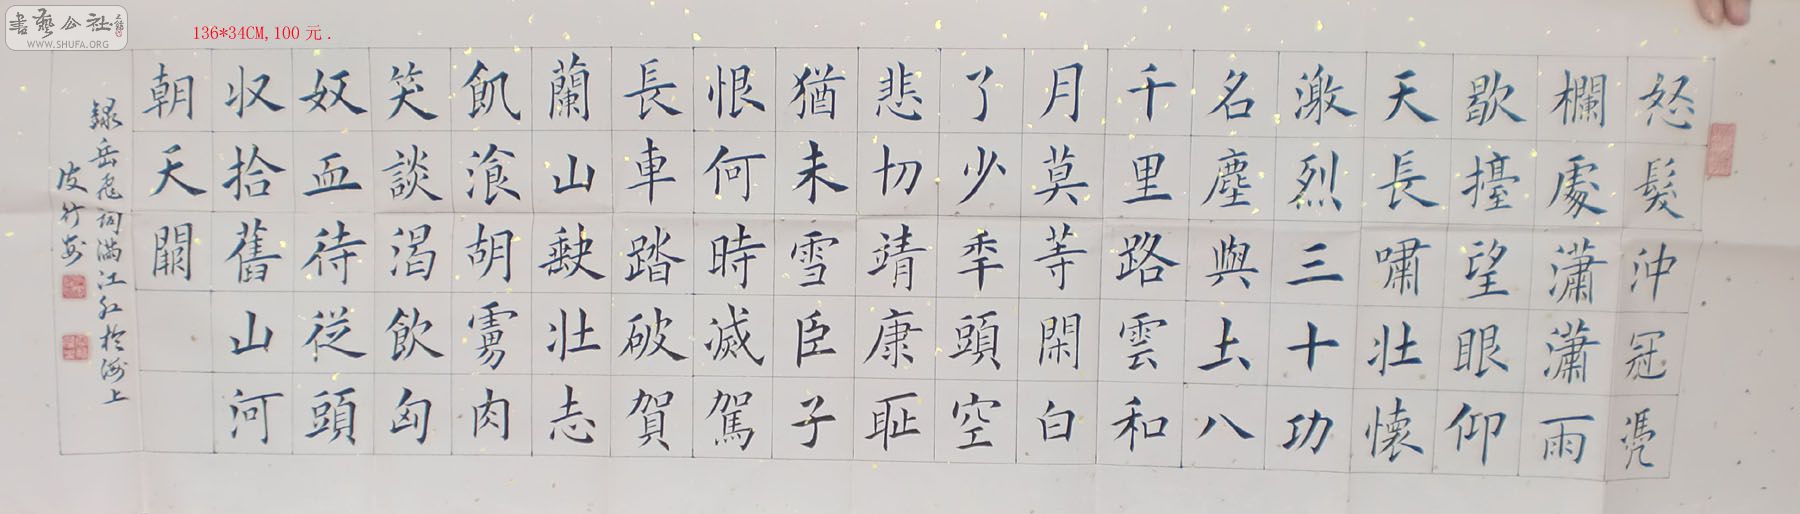 書藝公社
WWW.SHUFA.ORG
136*34CM,100 元 .
怒髮沖冠憑
欄處瀟瀟雨
歇擡望眼仰
天長嘯壯懷
激烈三十功
名塵與土八
千里路雲和
月莫等閑白
了少年頭空
悲切靖康恥
猶未雪臣子
恨何時滅駕
長車踏破賀
蘭山缺壯志
飢飡胡虜肉
笑談渴飲匈
奴血待從頭
收拾舊山河
朝天闕
錄岳飛詞滿江紅於海上
皮竹安